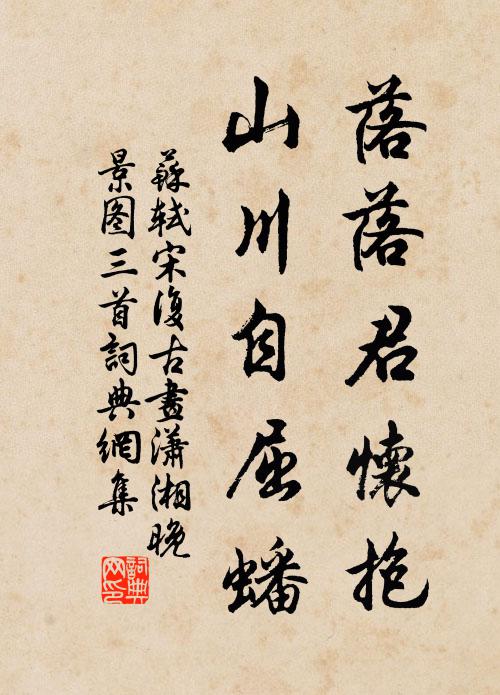 落落君懷抱
山川自屈蟠
蘇軾宋復古畫瀟湘晚
景图三首詞典網集
詞典
网印